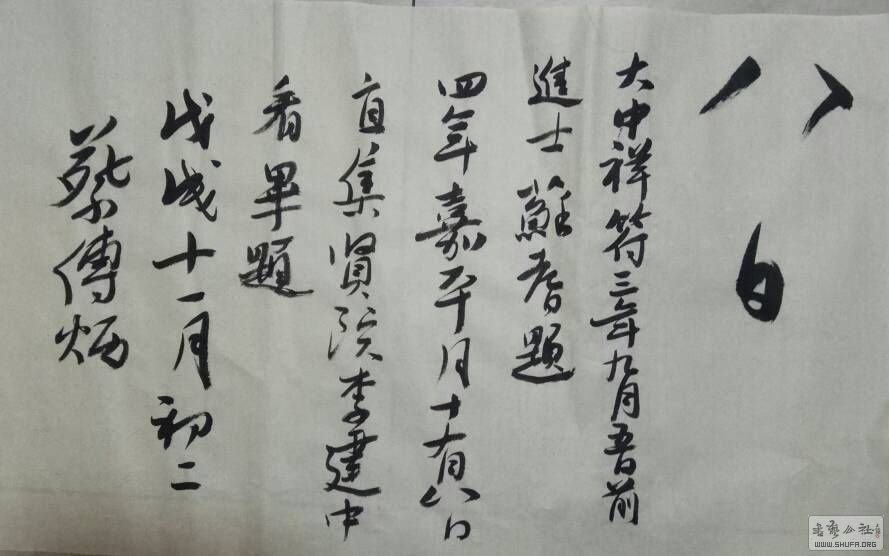 八日
大中祥符三年九月五日前
進士蘇耆題
四年嘉平月十有八日
直集賢院李建中
看畢題
戊戌十一月初二
蔡傳炳
书艺公社
WWW.SHUFA.ORG